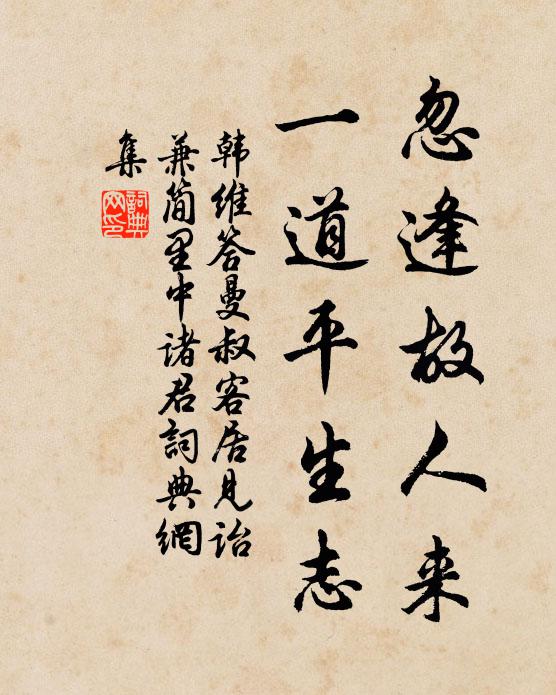 忽逢故人来
一道平生志
韩维答曼叔客居见诒
兼简里中诸君詞典網
集
詞典
网印